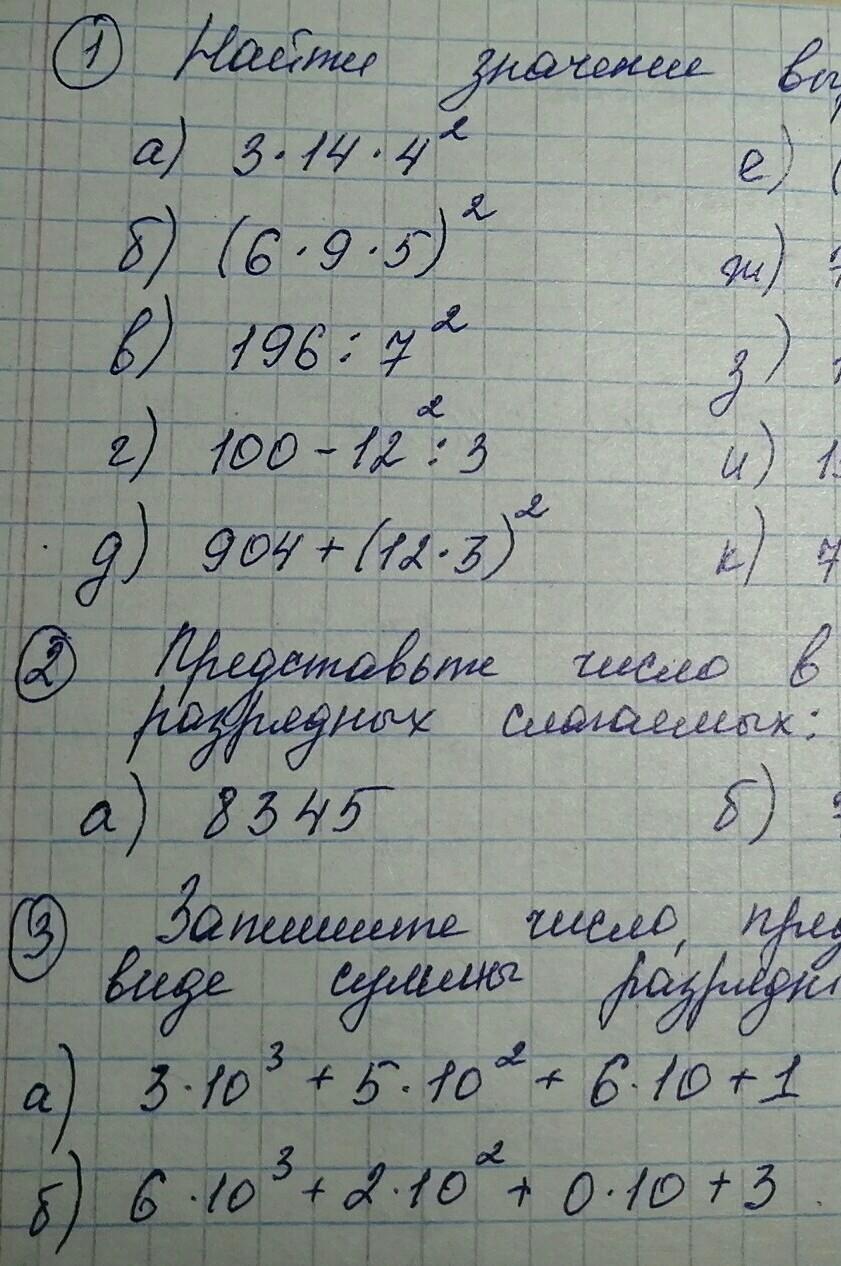 ① Найти значение
а) 3·14·4² е) (
б) (6·9·5)² ж) 7
в) 196 : 7² з)
г) 100 - 12² : 3 и) 1
д) 904 + (12·3)² к) 7
② Представьте число в
разрядных слагаемых:
а) 8345 б)
③ Запишите число,
виде суммы
а) 3·10³ + 5·10² + 6·10 + 1
б) 6·10³ + 2·10² + 0·10 + 3